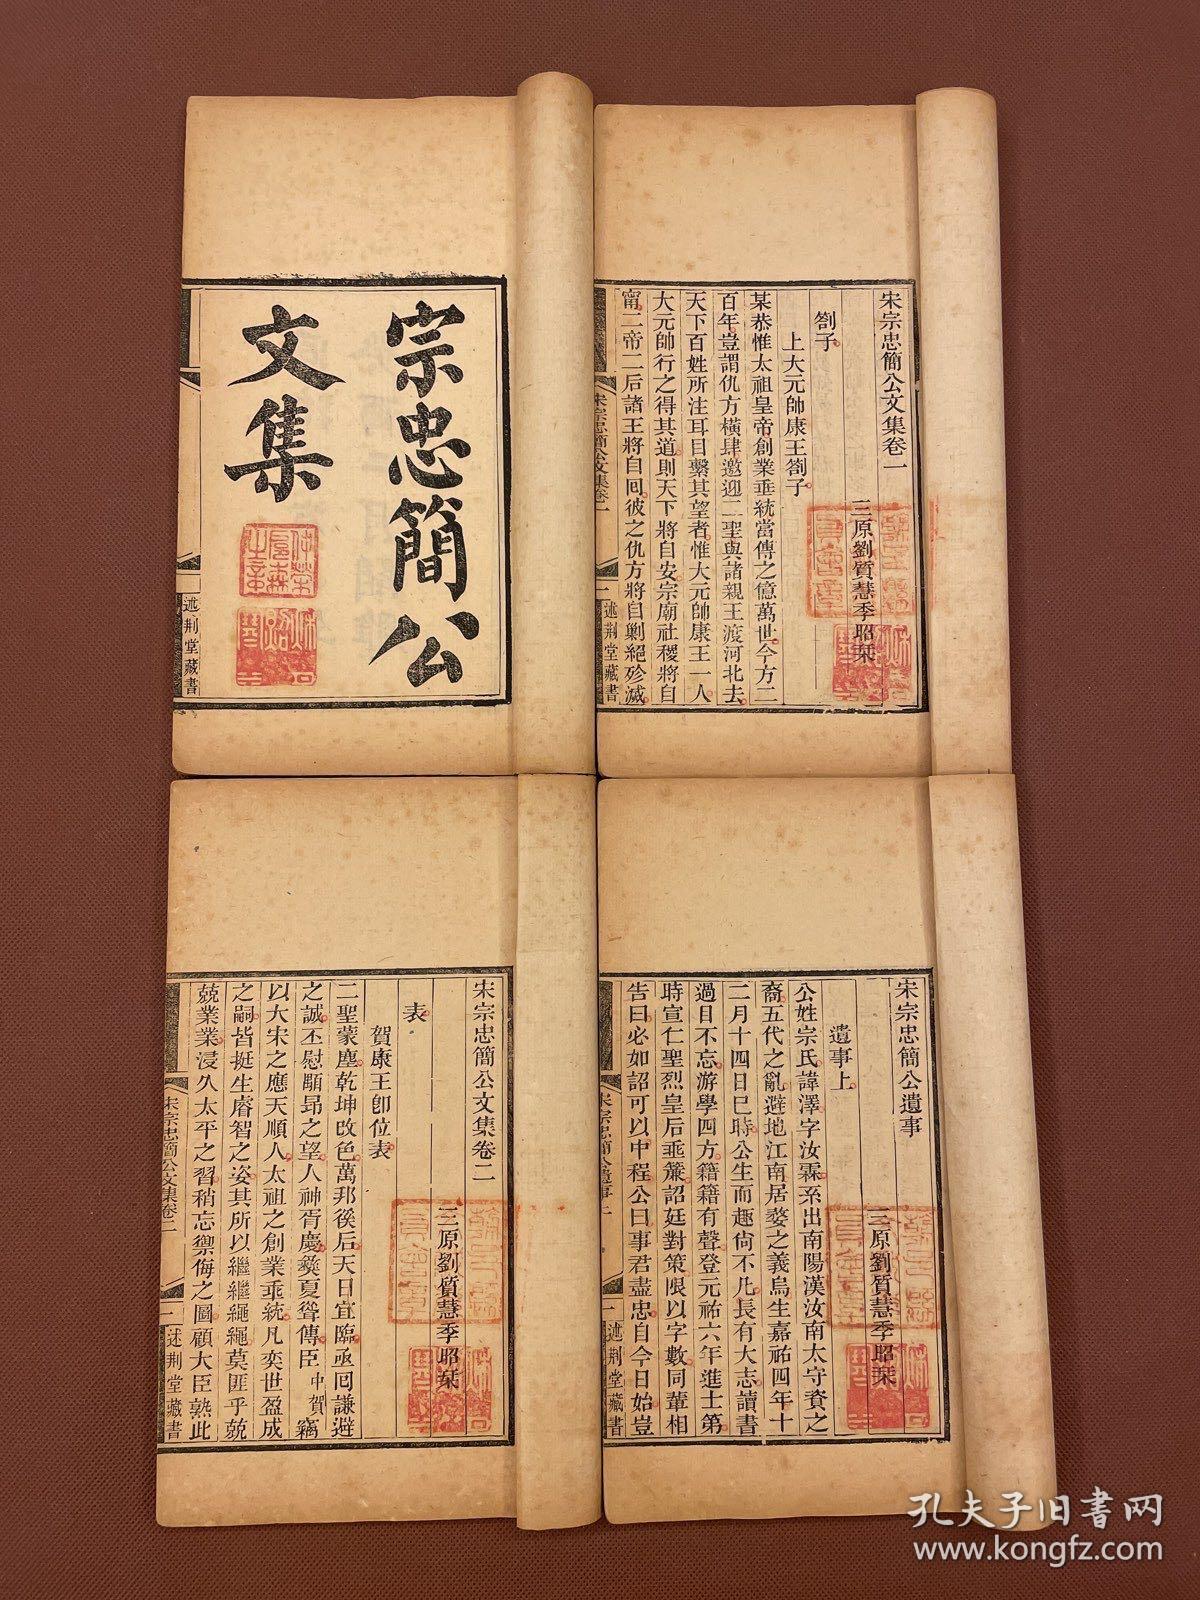 宗忠簡公
文集
述荆堂藏書
宋宗忠簡公文集卷一
三原劉質慧季昭栞
劄子
上大元帥康王劄子
某恭惟太祖皇帝創業垂統當傳之億萬世今方二
百年豈謂仇方橫肆邀迎二聖與諸親王渡河北去
天下百姓所注耳目繫其望者惟大元帥康王一人
大元帥行之得其道則天下將自安宗廟社稷將自
甯二帝二后諸王將自回彼之仇方將自剿絕殄滅
宋宗忠簡公文集卷一
一
述荆堂藏書
宋宗忠簡公文集卷二
三原劉質慧季昭栞
表
賀康王卽位表
二聖蒙塵乾坤改色萬邦徯后天日宜臨亟回謙遜
之誠丕慰顒昂之望人神胥慶夷夏聳傳臣中賀竊
以大宋之應天順人太祖之創業垂統凡奕世盈成
之嗣皆挺生睿智之姿其所以繼繼繩繩莫匪乎兢
兢業業浸久太平之習稍忘禦侮之圖顧大臣孰此
宋宗忠簡公文集卷二
一
述荆堂藏書
宋宗忠簡公遺事
三原劉質慧季昭栞
遺事上
公姓宗氏諱澤字汝霖系出南陽漢汝南太守資之
裔五代之亂避地江南居婺之義烏生嘉祐四年十
二月十四日巳時公生而趣尙不凡長有大志讀書
過目不忘游學四方籍籍有聲登元祐六年進士第
時宣仁聖烈皇后垂簾詔廷對策限以字數同輩相
告曰必如詔可以中程公曰事君盡忠自今日始豈
宋宗忠簡公遺事上
一
述荆堂藏書
孔夫子旧书网
www.kongfz.com